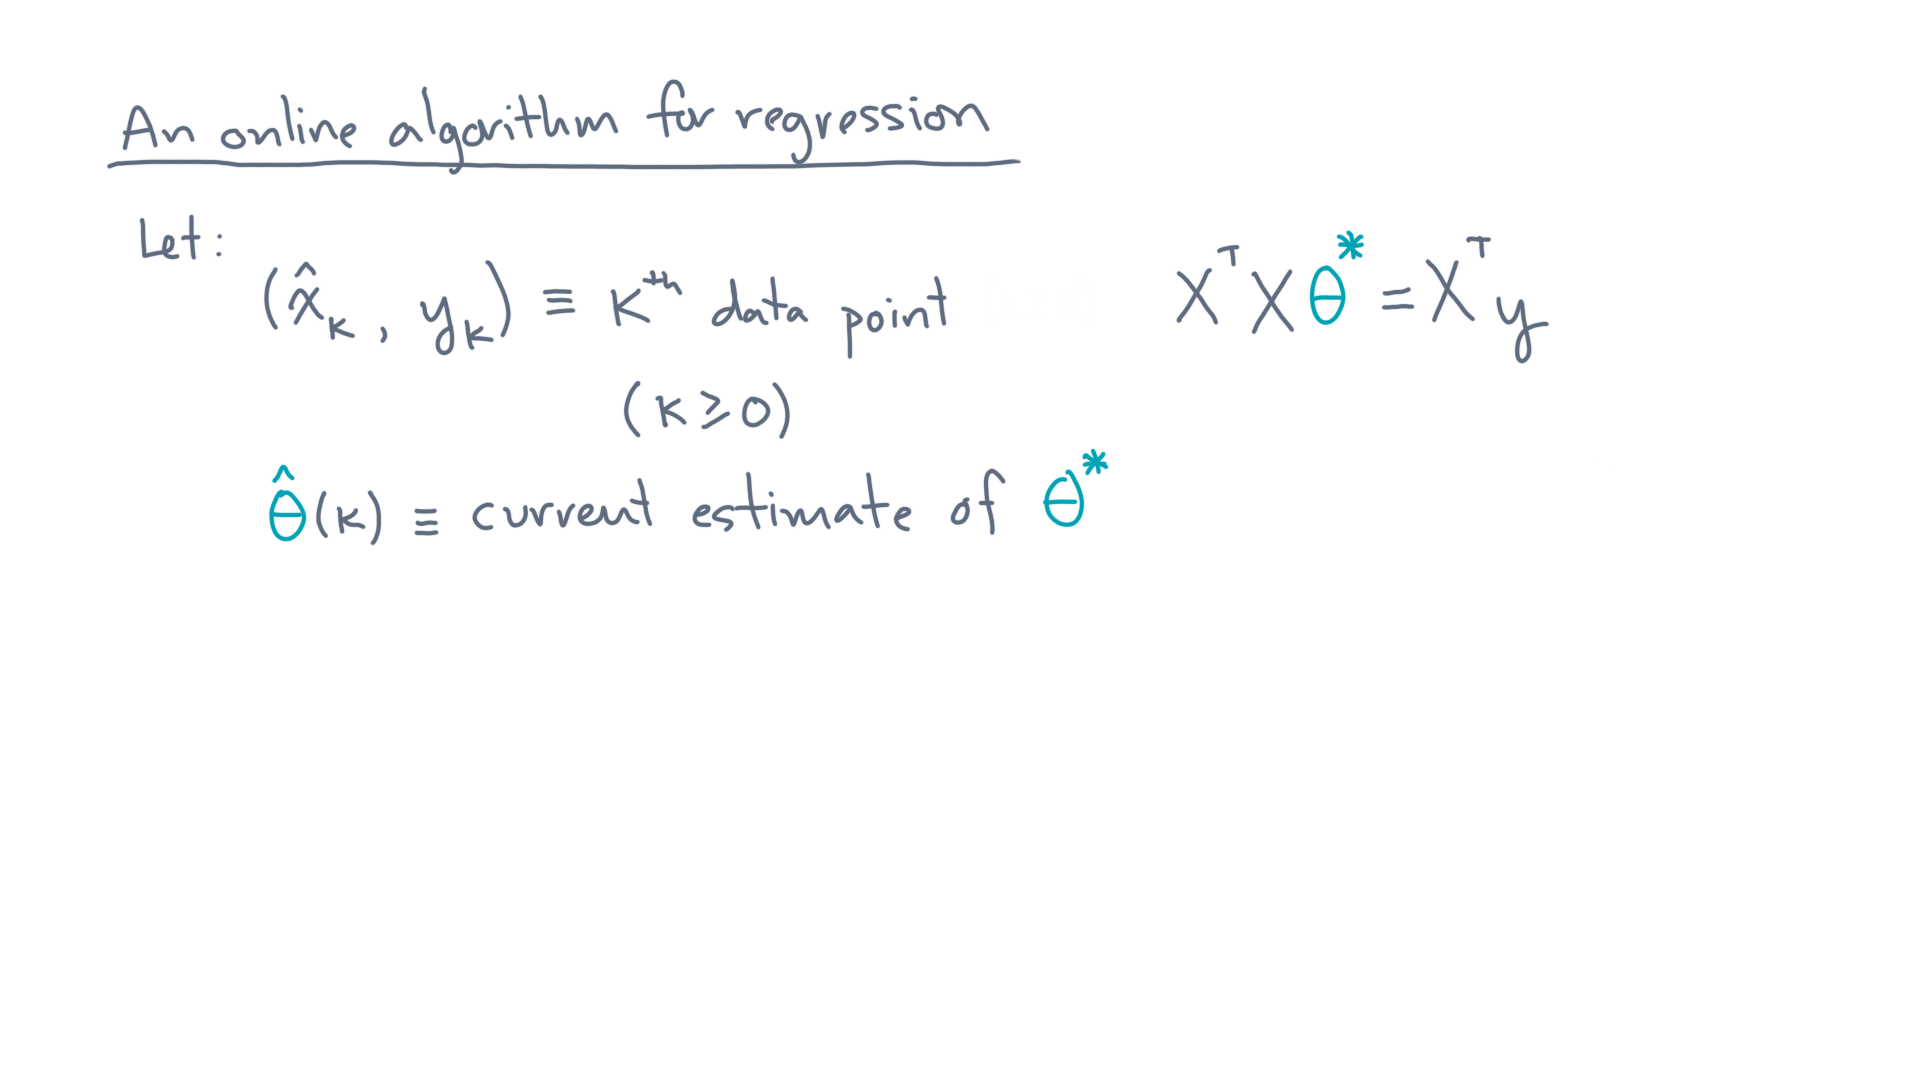 An online algorithm for regression
Let:
(x̂ₖ, yₖ) ≡ kᵗʰ data point
(k ≥ 0)
θ̂(k) ≡ current estimate of θ*
XᵀXθ* = Xᵀy